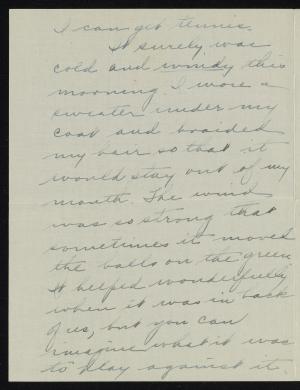 I can get tennis.
It surely was
cold and windy this
morning. I wore a
sweater under my
coat and braided
my hair so that it
would stay out of my
mouth. The wind
was so strong that
sometimes it moved
the balls on the green.
It helped wonderfully
when it was in back
of us, but you can
imagine what it was
to play against it.